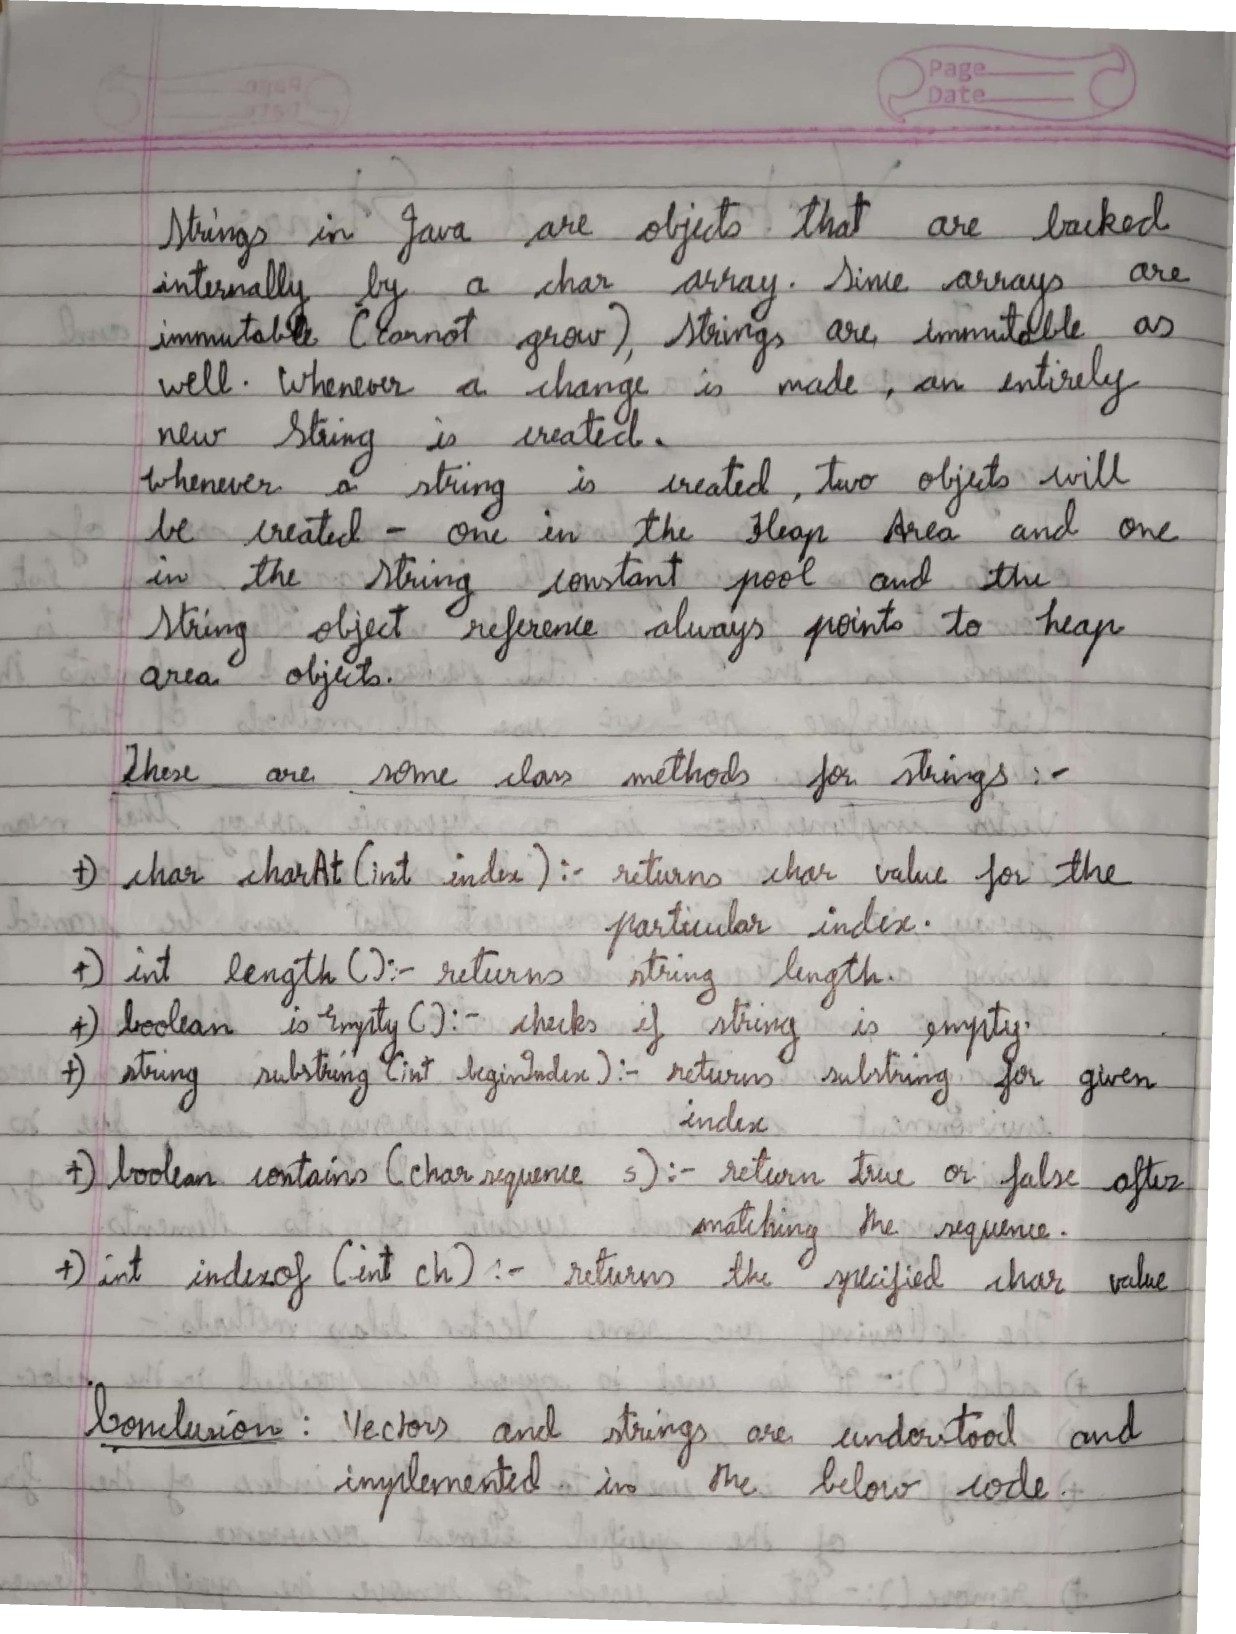 Page
Date
Strings in Java are objects that are backed
internally by a char array. Since arrays are
immutable (cannot grow), Strings are immutable as
well. Whenever a change is made, an entirely
new String is created.
Whenever a string is created, two objects will
be created - one in the Heap Area and one
in the String constant pool and the
String object reference always points to heap
area objects.
These are some class methods for strings :-
+) char charAt (int index) :- returns char value for the
particular index.
+) int length () :- returns string length.
+) boolean isEmpty () :- checks if string is empty.
+) string substring (int beginIndex) :- returns substring for given
index
+) boolean contains (char sequence s) :- return true or false after
matching the sequence.
+) int indexof (int ch) :- returns the specified char value
Conclusion : Vectors and strings are understood and
implemented in the below code.